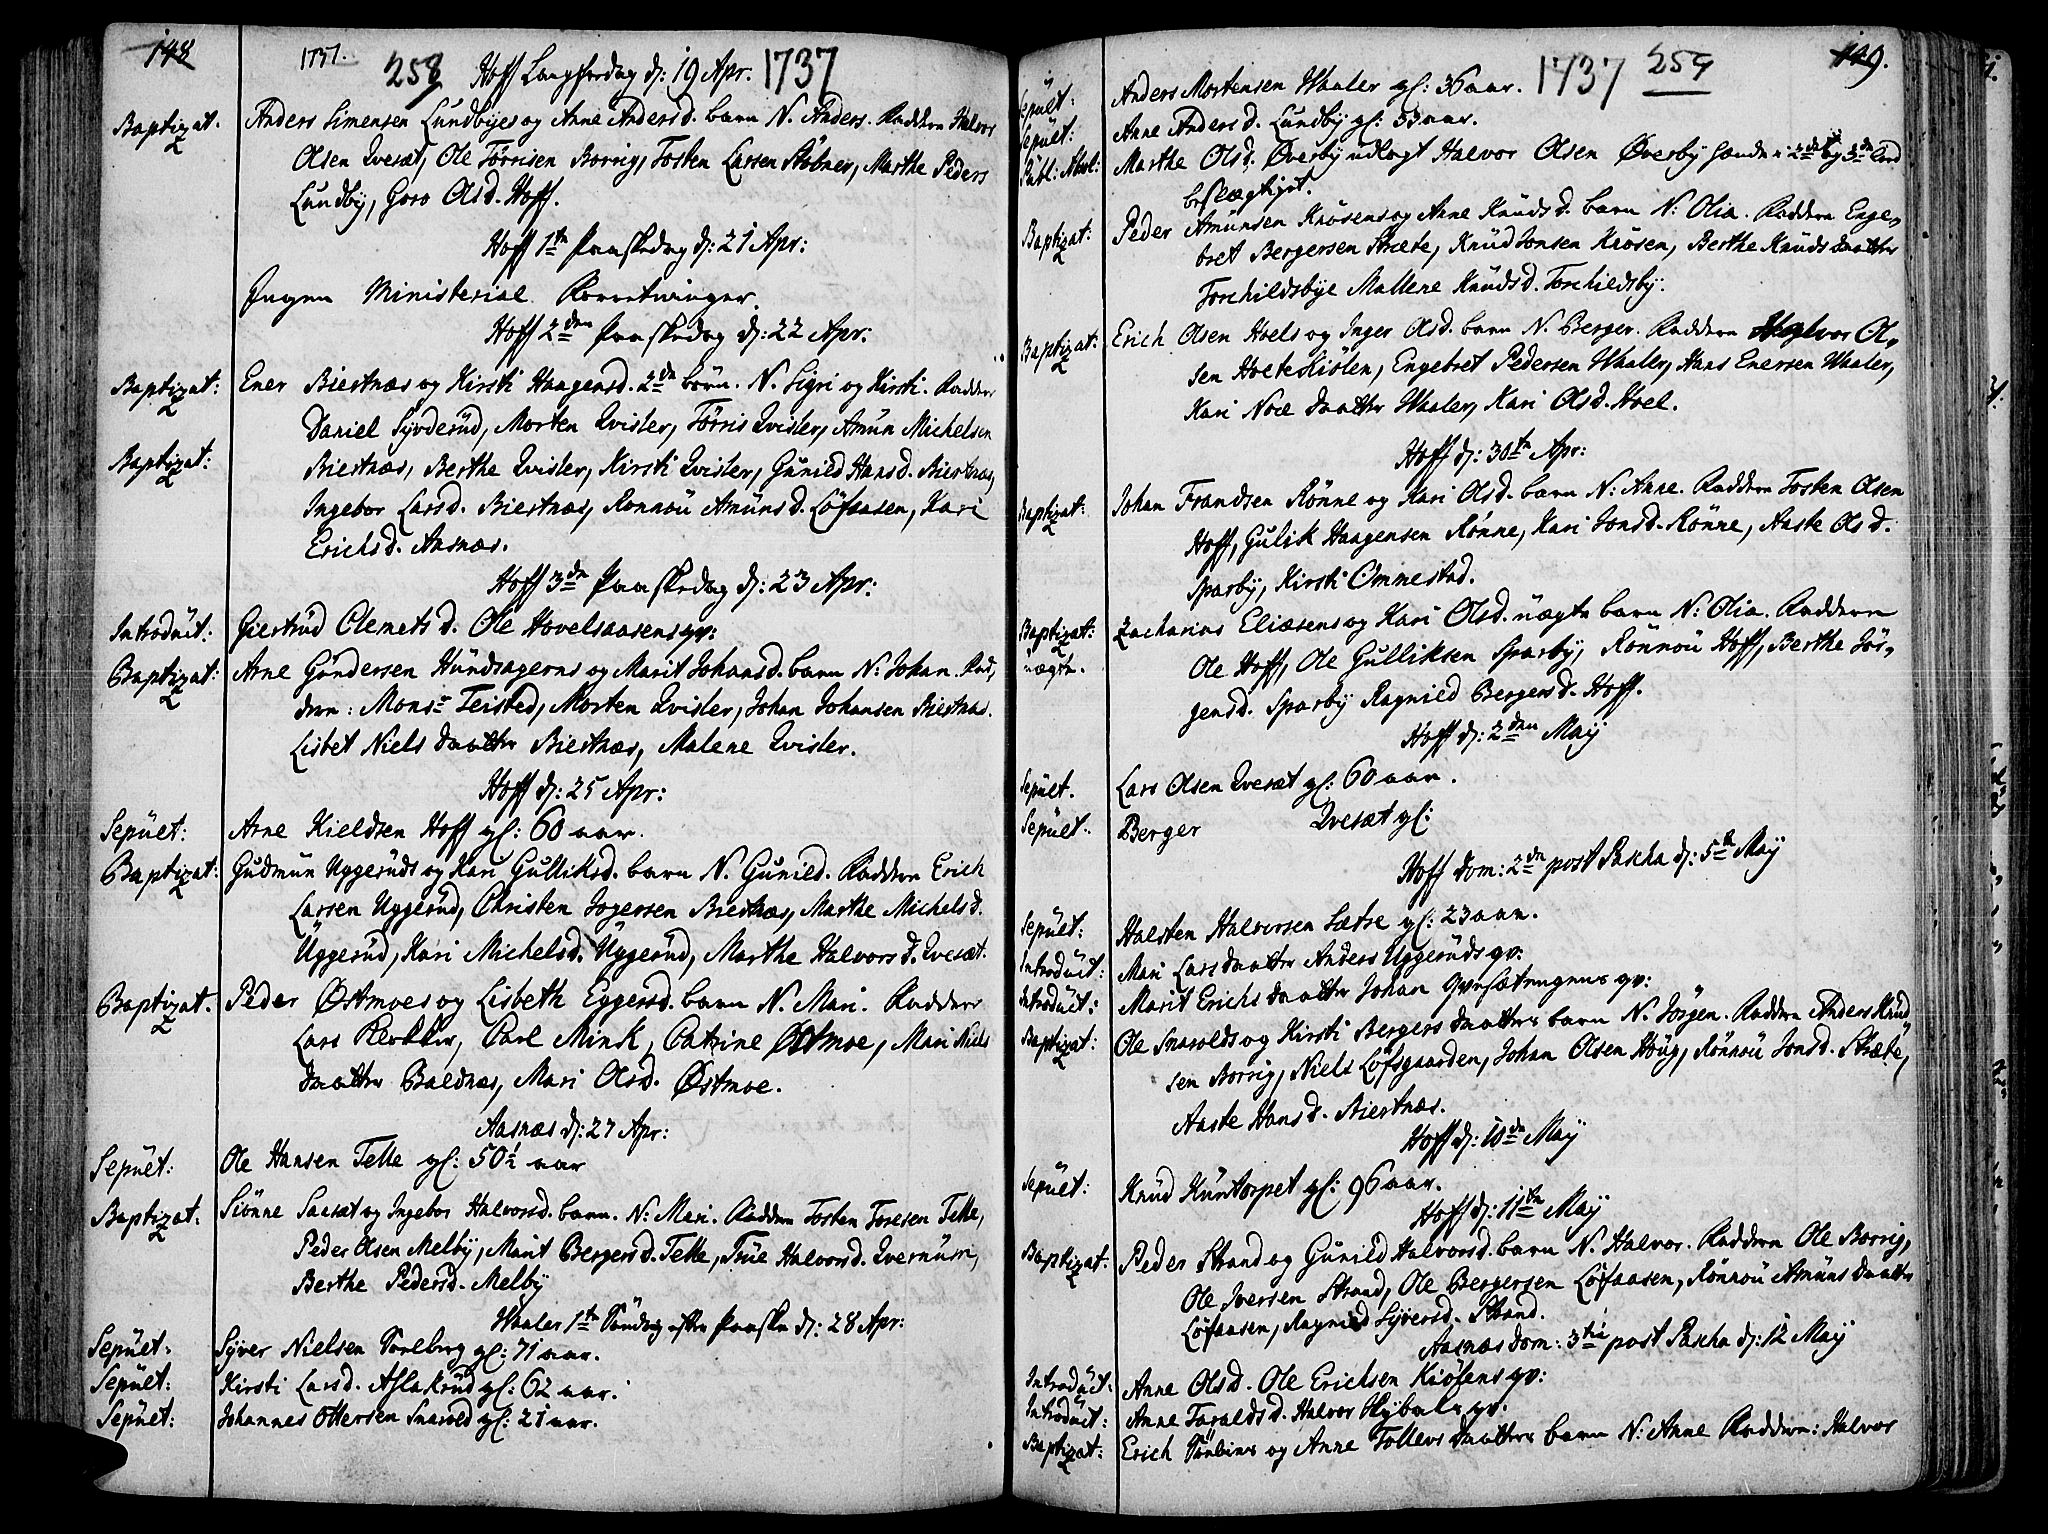 148 1737. 258 Hoff Langfredag d: 19 Apr. 1737
Baptizat. Anders Simensen Lundbyes og Anne Andersd. barn N. Anders. Faddern Halvor
Olsen Qvesæt, Ole Törrisen Borrig, Tosten Larsen Stöbner, Marthe Peders
Lundby, Goro Olsd. Hoff.
Hoff 1te Paaskedag d: 21 Apr:
Ingen Ministerial Forretninger.
Hoff 2den Paaskedag d: 22 Apr:
Baptizat: Ener Biertnæs og Kirsti Haagensd. 2de börn. N. Sigri og Kirsti. Faddere
Daniel Syvderud, Morten Qvisler, Törris Qvisler, Amun Michelsen
Baptizat: Biertnæs, Berthe Qvisler, Kirsti Qvisler, Gunild Hansd. Biertnæs,
Ingebor Larsd. Biertnæs, Ronnou Amunsd. Löfaasen, Kari
Erichsd. Aasnæs.
Hoff 3de Paaskedag d: 23 Apr:
Introduit: Giertrud Clemetsd. Ole Hovelsaasens qv:
Baptizat: Arne Gundersen Hundsagerns og Marit Johansd. barn N: Johan. Fad,
dern: Monsr Teisted, Morten Qvisler, Johan Johansen Biertnæs.
Lisbet Niels daatter Biertnæs, Malene Qvisler.
Hoff d: 25 Apr:
Sepuet: Arne Kieldsen Hoff gl: 60 aar.
Baptizat: Gudmun Uggeruds og Kari Gulliksd. barn N. Gunild. Faddern Erich
Larsen Uggerud, Christen Jogersen Biertnæs, Marthe Michelsd.
Uggerud, Kari Michelsd. Uggerud, Marthe Halvorsd. Qvesæt.
Baptizat. Peder Östmoes og Lisbeth Eggersd. barn N. Mari. Faddere
Lars, Carl Mink, Catrine Östmoe, Mari Niels
daatter Baldnæs, Mari Olsd. Östmoe.
Aasnæs d: 27 Apr:
Sepuet: Ole Hansen Telle gl: 50½ aar
Baptizat. Siönne Sæsæt og Ingebor Halvorsd. barn. N: Mari. Faddern Tosten Toresen Telle,
Peder Olsen Melby, Marit Bergersd. Telle, True Halvorsd. Qvernum,
Berthe Pedersd. Melby
Waaler 1te Söndag efter Paaske d: 28 Apr:
Sepuet: Syver Nielsen Sorlberg gl: 71 aar.
Sepuet: Kirsti Larsd. Aslakrud gl: 62 aar.
Sepuet: Johannes Ottersen Snarold gl: 21 aar.
1737 259 149.
Sepuet: Anders Mortensen Waaler gl: 36 aar.
Sepuet: Anne Andersd. Lundby gl: 53 aar.
Publ: Absol: Marthe Olsd. Överby udlagt Halvor Olsen Överby hænde i 2det og 3de Leed
beslægtiget.
Baptizat: Peder Amunsen Krösens og Anne Knudsd. barn N: Olia. Faddern Enge,
bret Bergersen Stræte, Knud Jonsen Krösen, Berthe Knuds daatter
Torchildsbye Mallene Knudsd. Torchildsby.
Baptizat: Erich Olsen Hoels og Inger Olsd. barn N. Berger. Faddern Halvor Ol,
sen HoeteKiölen, Engebret Pedersen Waaler, Hans Enersen Waaler,
Kari Noe daatter Waaler, Kari Olsd. Hoel.
Hoff d: 30te Apr:
Baptizat: Johan Frandsen Rönne og Kari Olsd. barn N: Anne. Faddern Tosten Olsen
Hoff, Gulik Haagensen Rönne, Kari Jonsd. Rönne, Aaste Olsd.
Sparby, Kirsti Ommestad.
Baptizat: Zacharias Eliæsens og Kari Olsd. uægte barn N: Olia. Faddern
uægte. Ole Hoff, Ole Gulliksen Sparby, Rönnou Hoff, Berthe Jör,
gensd. Sparby Ragnild Bergersd. Hoff.
Hoff d: 2den May
Sepuet. Lars Olsen Qvesæt gl: 60 aar.
Sepuet. Berger Qvesæt gl:
Hoff Dom: 2de post Pascha d: 5te May
Sepuet: Halsten Halvorsen Sætre gl: 23 aar.
Introduit: Mari Lars daatter Anders Uggeruds qv:
Introduit: Marit Erichs daatter Johan qv:
Baptizat: Ole Snarolds og Kirsti Bergers daatters barn N. Jörgen. Faddern Anders Knud
sen Borrig, Niels Löfsgaarden, Johan Olsen Houg, Rönnou Jonsd. Stræte,
Aaste Hansd. Biertnæs.
Hoff d: 10de May
Sepuet: Knud Kuntorpet gl: 96 aar.
Hoff d: 11te May
Baptizat: Peder Strand og Gunild Halvorsd. barn N. Halvor. Faddern Ole Borrig,
Ole Iversen Strand, Ole Bergersen Löfaasen, Rönnou Amuns daatter
Löfaasen, Ragnild Syversd. Strand.
Aasnæs Dom: 3tia post Pascha d: 12 May
Introduit: Anne Olsd. Ole Erichsen Kiölens qv:
Introduit: Anne Taraldsd. Halvor qv.
Baptizat: Erich og Anne Tollevs daatters barn N: Anne Faddern: Halvor